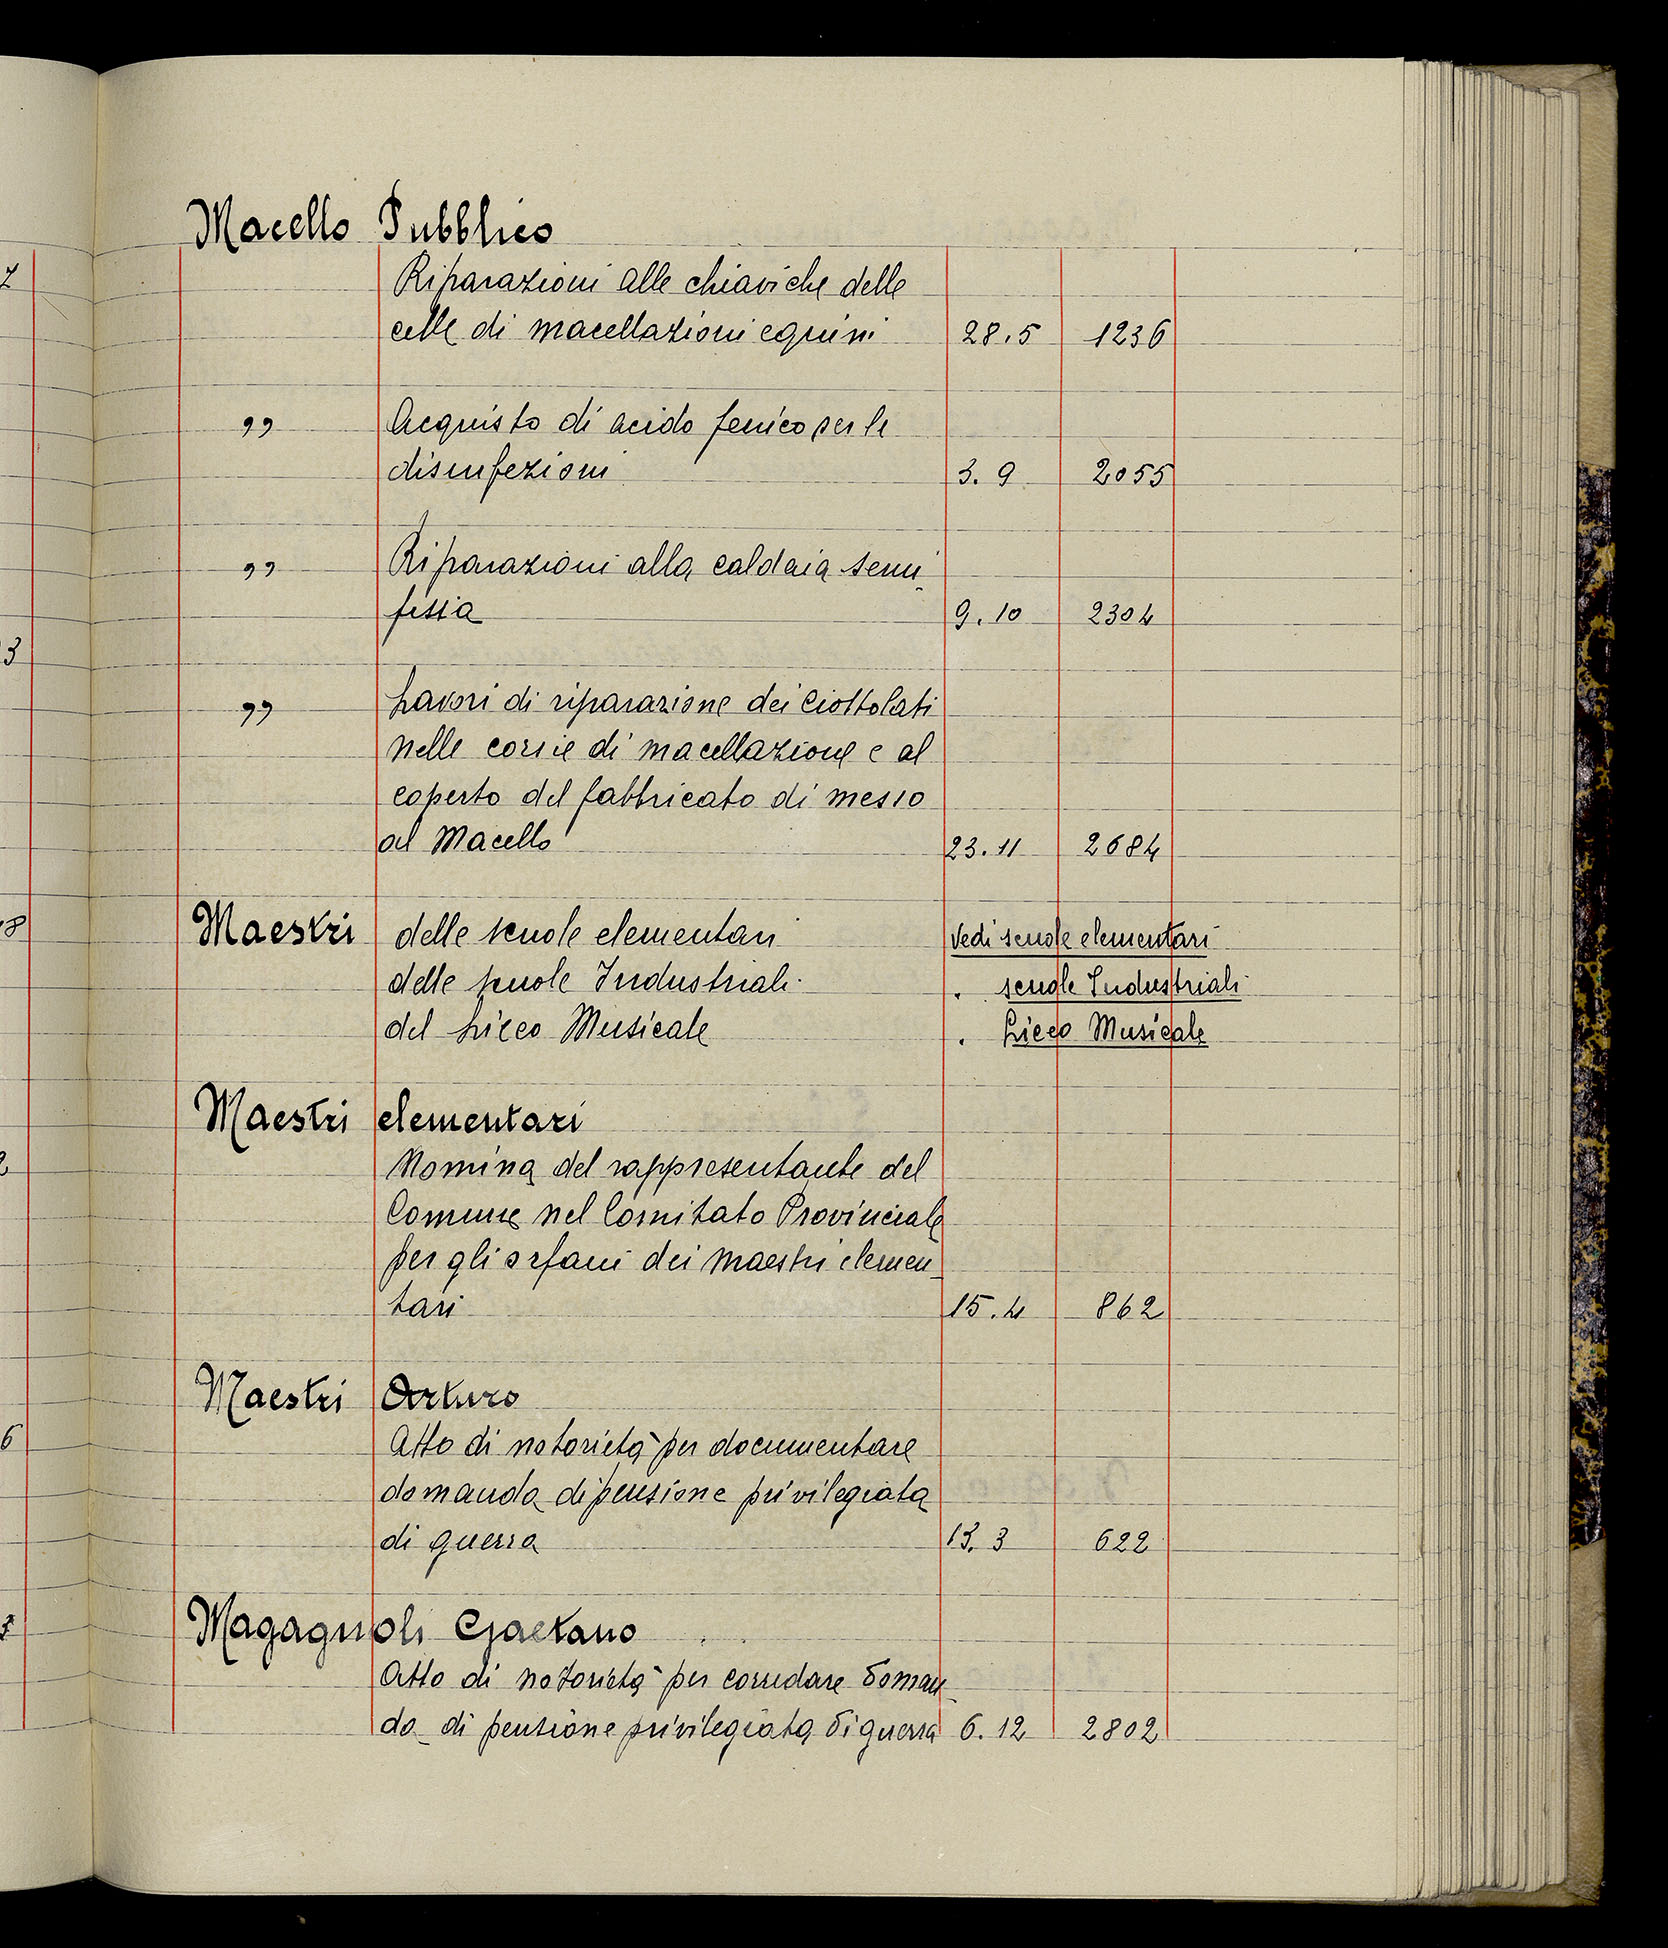 Macello Pubblico
Riparazioni alle chiaviche delle
celle di macellazioni equini 28.5 1236
" Acquisto di acido fenico per le
disinfezioni 3.9 2055
" Riparazioni alla caldaia semi
fissa 9.10 2304
" Lavori di riparazione dei Ciottolati
nelle corsie di macellazione e al
coperto del fabbricato di mezzo
al Macello 23.11 2684
Maestri delle scuole elementari Vedi scuole elementari
delle scuole Industriali. " scuole Industriali
del Liceo Musicale " Liceo Musicale
Maestri elementari
Nomina del rappresentante del
Comune nel Comitato Provinciale
per gli orfani dei maestri elemen-
tari 15.4 862
Maestri Arturo
Atto di notorietà per documentare
domanda di pensione privilegiata
di guerra 13.3 622
Magagnoli Gaetano
Atto di notorietà per corredare doman-
da di pensione privilegiata di guerra 6.12 2802
7
3
8
2
6